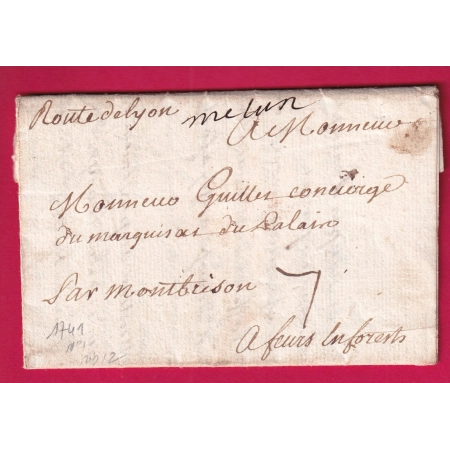 Route de lyon melun
A Monsieur
Monsieur Guillet concierge
du marquisat du Palais
Par montbrison 7
A feurs En forests
1741
n°1